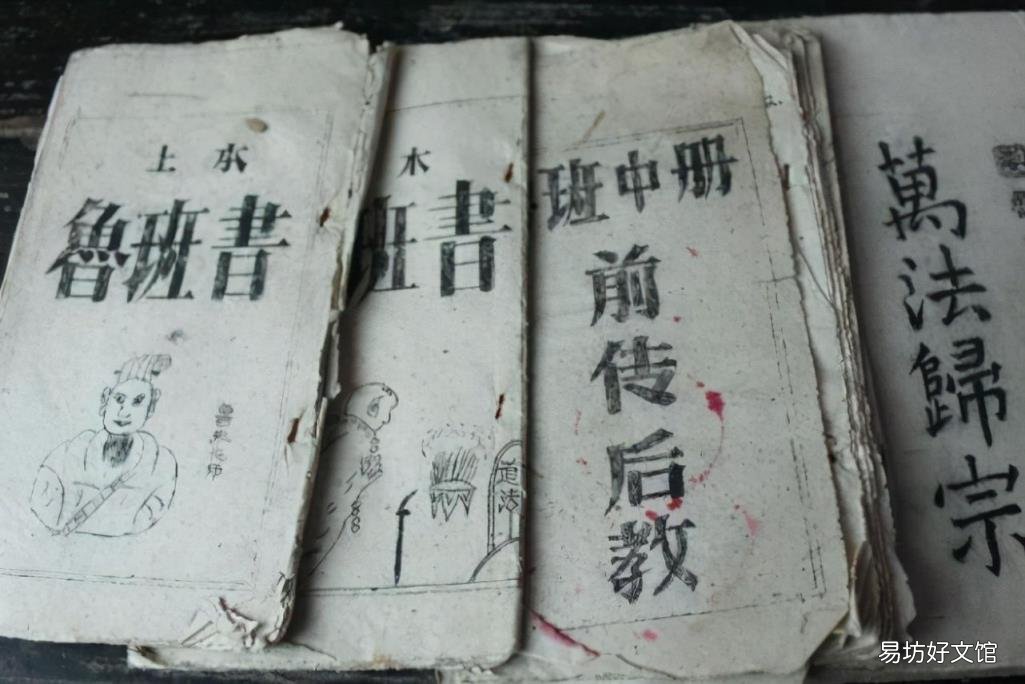 上本
魯班書
木
班書
班中册
前传后教
道法
萬法歸宗
易坊好文馆